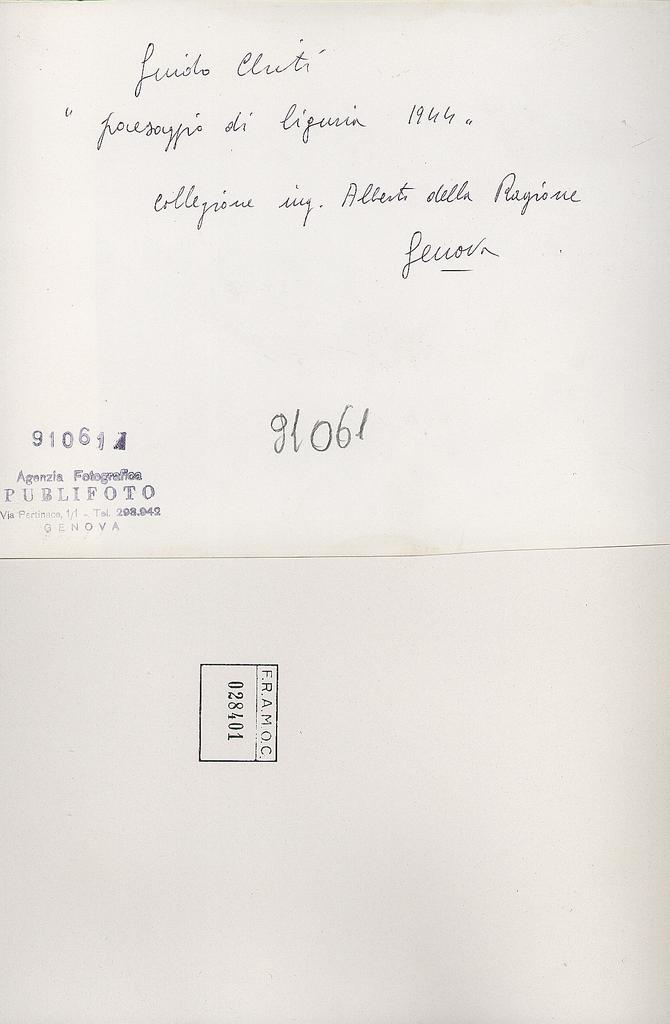 Guido Chiti
"paesaggio di liguria 1944"
collezione ing. Alberto della Ragione
Genova
91061
910611
Agenzia Fotografica
PUBLIFOTO
Via Pertinace, 1/1 - Tel. 298.942
GENOVA
F.R.A.M.O.C.
028401